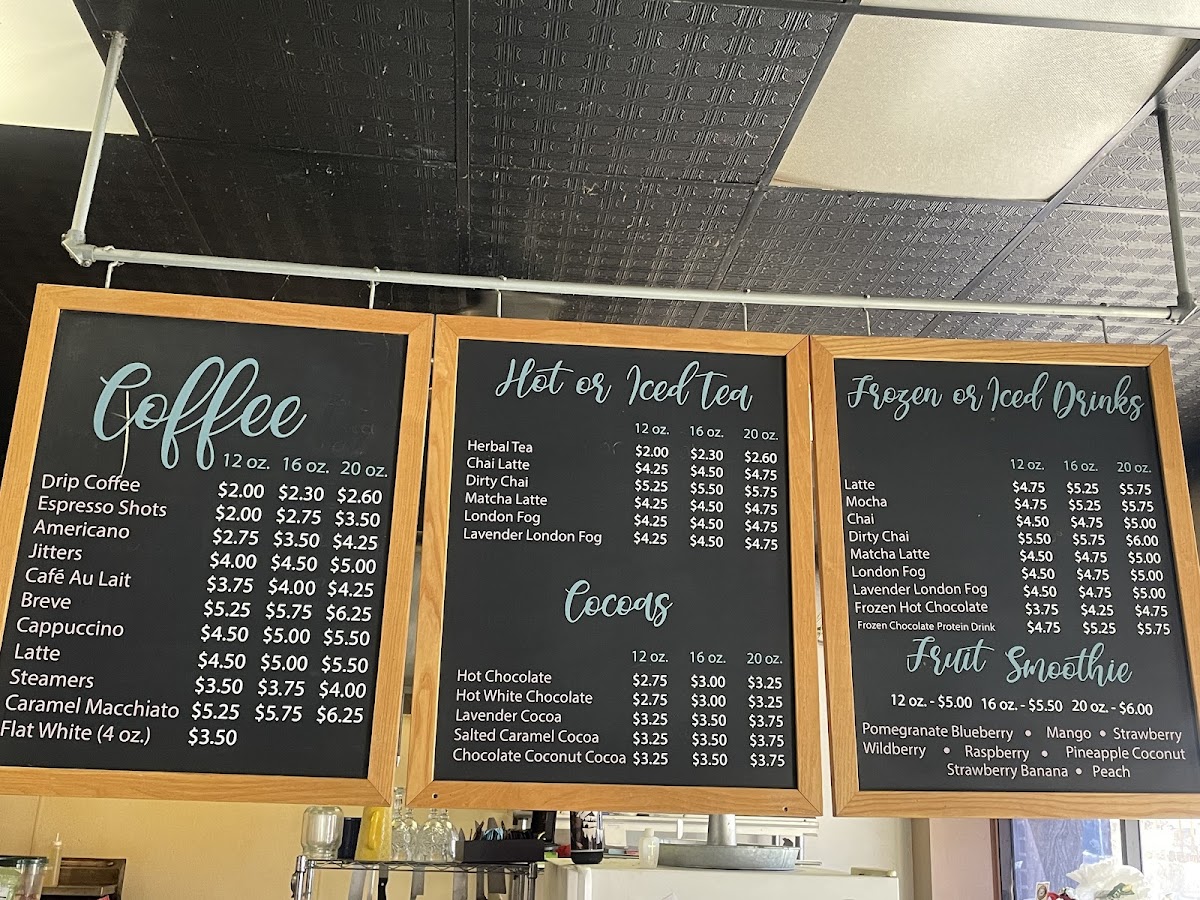 Coffee
12 oz. 16 oz. 20 oz.
Drip Coffee $2.00 $2.30 $2.60
Espresso Shots $2.00 $2.75 $3.50
Americano $2.75 $3.50 $4.25
Jitters $4.00 $4.50 $5.00
Café Au Lait $3.75 $4.00 $4.25
Breve $5.25 $5.75 $6.25
Cappuccino $4.50 $5.00 $5.50
Latte $4.50 $5.00 $5.50
Steamers $3.50 $3.75 $4.00
Caramel Macchiato $5.25 $5.75 $6.25
Flat White (4 oz.) $3.50
Hot or Iced Tea
12 oz. 16 oz. 20 oz.
Herbal Tea $2.00 $2.30 $2.60
Chai Latte $4.25 $4.50 $4.75
Dirty Chai $5.25 $5.50 $5.75
Matcha Latte $4.25 $4.50 $4.75
London Fog $4.25 $4.50 $4.75
Lavender London Fog $4.25 $4.50 $4.75
Cocoas
12 oz. 16 oz. 20 oz.
Hot Chocolate $2.75 $3.00 $3.25
Hot White Chocolate $2.75 $3.00 $3.25
Lavender Cocoa $3.25 $3.50 $3.75
Salted Caramel Cocoa $3.25 $3.50 $3.75
Chocolate Coconut Cocoa $3.25 $3.50 $3.75
Frozen or Iced Drinks
12 oz. 16 oz. 20 oz.
Latte $4.75 $5.25 $5.75
Mocha $4.75 $5.25 $5.75
Chai $4.50 $4.75 $5.00
Dirty Chai $5.50 $5.75 $6.00
Matcha Latte $4.50 $4.75 $5.00
London Fog $4.50 $4.75 $5.00
Lavender London Fog $4.50 $4.75 $5.00
Frozen Hot Chocolate $3.75 $4.25 $4.75
Frozen Chocolate Protein Drink $4.75 $5.25 $5.75
Fruit Smoothie
12 oz. - $5.00 16 oz. - $5.50 20 oz. - $6.00
Pomegranate Blueberry • Mango • Strawberry
Wildberry • Raspberry • Pineapple Coconut
Strawberry Banana • Peach